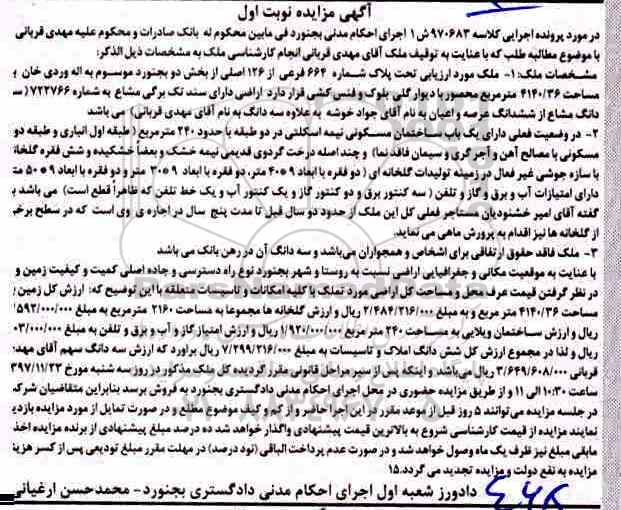 آگهی مزایده نوبت اول
در مورد پرونده اجرایی کلاسه ۹۷۰۶۸۳ ش ۱ اجرای احکام مدنی بجنورد فی مابین محکوم له بانک صادرات و محکوم علیه مهدی قربانی
با موضوع مطالبه طلب که با عنایت به توقیف ملک آقای مهدی قربانی انجام کارشناسی ملک به مشخصات ذیل الذکر:
مشخصات ملک: ۱- ملک مورد ارزیابی تحت پلاک شماره ۶۶۴ فرعی از ۱۲۶ اصلی از بخش دو بجنورد موسوم به اله وردی خان
مساحت ۴۱۴۰/۳۶ مترمربع محصور با دیوار گلی، بلوک و فنس کشی قرار دارد اراضی دارای سند تک برگی مشاع به شماره ۷۲۲۷۶۶ (سه
دانگ مشاع از ششدانگ عرصه و اعیان به نام آقای جواد خوشه به علاوه سه دانگ به نام آقای مهدی قربانی) می باشد
۲- در وضعیت فعلی دارای یک باب ساختمان مسکونی نیمه اسکلتی در دو طبقه با حدود ۲۴۰ مترمربع (طبقه اول انباری و طبقه دو
مسکونی با مصالح آهن و آجر گری و سیمان فاقد نما) و چند اصله درخت گردوی قدیمی نیمه خشک و بعضاً خشکیده و شش فقره گلخانه
با سازه جوشی غیر فعال در زمینه تولیدات گلخانه ای (دو فقره با ابعاد ۹*۴۰ متر، دو فقره با ابعاد ۹*۳۰ متر و دو فقره با ابعاد ۹*۵۰ مت
دارای امتیازات آب و برق و گاز و تلفن (سه کنتور برق و دو کنتور گاز و یک کنتور آب و یک خط تلفن که ظاهراً قطع است) می باشد
گفته آقای امیر خشنودیان مستاجر فعلی کل این ملک از حدود دو سال قبل تا مدت پنج سال در اجاره ی وی است که در سطح برخی
از گلخانه ها نیز اقدام به پرورش ماهی می نماید.
۳- ملک فاقد حقوق ارتفاقی برای اشخاص و همجواران می‌باشد و سه دانگ آن در رهن بانک می باشد
با عنایت به موقعیت مکانی و جغرافیایی اراضی نسبت به روستا و شهر بجنورد نوع راه دسترسی و جاده اصلی کمیت و کیفیت زمین و
در نظر گرفتن قیمت عرف محل و مساحت کل اراضی مورد تملک با کلیه امکانات و تاسیسات متعلقه با این توضیح که: ارزش کل زمین
مساحت ۴۱۴۰/۳۶ متر مربع و به مبلغ ۲/۴۸۴/۲۱۶/۰۰۰ ریال و ارزش گلخانه ها مجموعا به مساحت ۲۱۶۰ مترمربع به مبلغ ۵۹۲/۰۰۰/۰۰۰
ریال و ارزش ساختمان ویلایی به مساحت ۲۴۰ متر مربع ۱/۹۲۰/۰۰۰/۰۰۰ ریال و ارزش امتیاز گاز و آب و برق و تلفن به مبلغ ۰۳/۰۰۰/۰۰۰
ریال و لذا در مجموع ارزش کل شش دانگ املاک و تاسیسات به مبلغ ۷/۲۹۹/۲۱۶/۰۰۰ ریال برآورد که ارزش سه دانگ سهم آقای مهدی
قربانی ۳/۶۴۹/۶۰۸/۰۰۰ ریال می‌باشد و اینکه پس از سیر مراحل قانونی مقرر گردید کل ملک مذکور در روز سه شنبه مورخ ۳۹۷/۱۱/۲۳
ساعت ۱۰:۳۰ الی ۱۱ و از طریق مزایده حضوری در محل اجرای احکام مدنی دادگستری بجنورد به فروش برسد بنابراین متقاضیان شرکت
در جلسه مزایده می‌توانند ۵ روز قبل از موعد مقرر در این اجرا حاضر و از کم و کیف موضوع مطلع و در صورت تمایل از مورد مزایده بازدید
نمایند مزایده از قیمت کارشناسی شروع به بالاترین قیمت پیشنهادی واگذار خواهد شد ده درصد مبلغ پیشنهادی از برنده مزایده اخذ
مابقی مبلغ نیز ظرف یک ماه وصول خواهد شد و در صورت عدم پرداخت الباقی (نود درصد) در مهلت مقرر مبلغ تودیعی پس از کسر هزینه
مزایده به نفع دولت و مزایده تجدید می گردد. ۱۵
دادورز شعبه اول اجرای احکام مدنی دادگستری بجنورد - محمدحسن ارغیانی